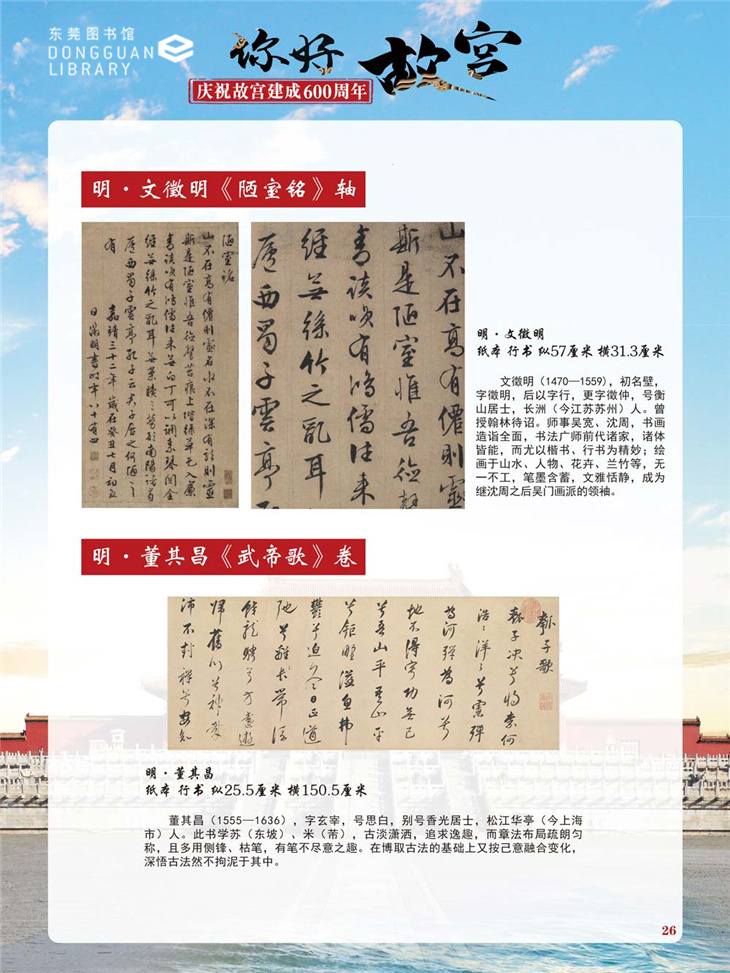 东莞图书馆
DONGGUAN
LIBRARY
你好 故宫
庆祝故宫建成600周年
明·文徵明《陋室铭》轴
陋室铭
山不在高有僊则灵水不在深有龙则灵
斯是陋室惟吾德馨苔痕上阶绿草色入帘
青谈咲有鸿儒往来无白丁可以调素琴阅金
经无丝竹之乱耳无案牍之劳形南阳诸葛
庐西蜀子云亭孔子云何陋之
有
嘉靖三十二年岁在癸丑七月
徵明书时年八十有四
山不在高有僊则灵
斯是陋室惟吾德馨
青谈咲有鸿儒往来
经无丝竹之乱耳
庐西蜀子云亭
明·文徵明
纸本 行书 纵57厘米 横31.3厘米
文徵明（1470—1559），初名壁，
字徵明，后以字行，更字徵仲，号衡
山居士，长洲（今江苏苏州）人。曾
授翰林待诏。师事吴宽、沈周，书画
造诣全面，书法广师前代诸家，诸体
皆能，而尤以楷书、行书为精妙；绘
画于山水、人物、花卉、兰竹等，无
一不工，笔墨含蓄，文雅恬静，成为
继沈周之后吴门画派的领袖。
明·董其昌《武帝歌》卷
瓠子歌
瓠子决兮将奈何
浩洋洋兮虑殚
为河殚为河兮
地不得宁功无已
兮吾山平吾山平
兮钜野溢鱼弗
郁兮迫冬日正道
弛兮离常流
蛟龙骋兮方远游
归旧川兮神哉
沛不封禅兮安知
明·董其昌
纸本 行书 纵25.5厘米 横150.5厘米
董其昌（1555—1636），字玄宰，号思白，别号香光居士，松江华亭（今上海
市）人。此书学苏（东坡）、米（芾），古淡潇洒，追求逸趣，而章法布局疏朗匀
称，且多用侧锋、枯笔，有笔不尽意之趣。在博取古法的基础上又按己意融合变化，
深悟古法然不拘泥于其中。
26